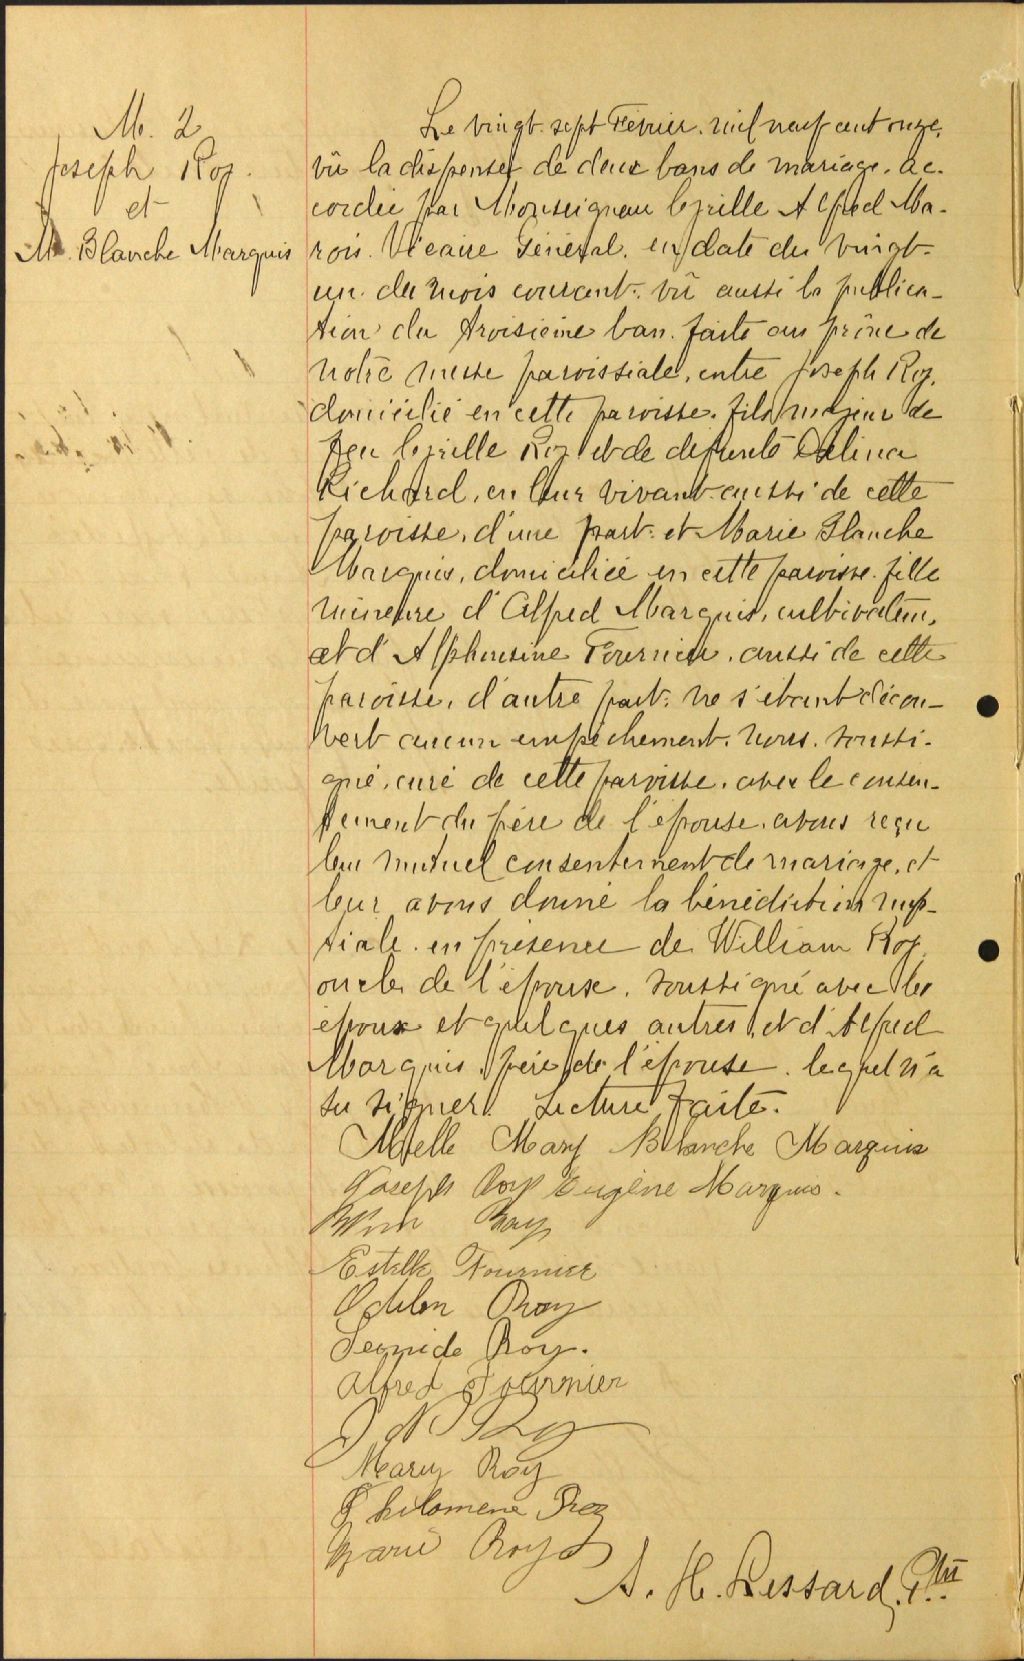 M. 2
Joseph Roy.
et
M. Blanche Marquis
Le vingt-sept Février, mil neuf cent onze,
vû la dispense de deux bans de mariage, ac-
cordée par Monseigneur Cyrille Alfred Ma-
rois. Vicaire Général, en date du vingt-
un du mois courant, vû aussi la publica-
tion du troisième ban, faite au prône de
notre messe paroissiale, entre Joseph Roy,
domicilié en cette paroisse, fils majeur de
feu Cyrille Roy et de défunte Odelina
Richard, en leur vivant aussi de cette
paroisse, d'une part, et Marie Blanche
Marquis, domiciliée en cette paroisse, fille
mineure d'Alfred Marquis, cultivateur,
et d'Alphonsine Fournier, aussi de cette
paroisse, d'autre part, ne s'étant décou-
vert aucun empêchement, nous, soussi-
gné, curé de cette paroisse, avec le consen-
tement du père de l'épouse, avons reçu
leur mutuel consentement de mariage, et
leur avons donné la bénédiction nup-
tiale en présence de William Roy,
oncle de l'épouse, soussigné avec les
époux et quelques autres, et d'Alfred
Marquis, père de l'épouse, lequel n'a
su signer. Lecture faite.
Melle Mary Blanche Marquis
Joseph Roy Eugène Marquis.
Wm Roy
Estelle Fournier
Odilon Roy
Leonide Roy.
Alfred Fournier
Roy
Mary Roy
Philomene Roy
Marie Roy
A. H. Lessard, Ptre